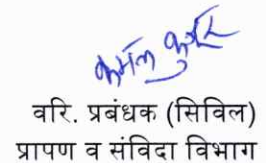 वरि. प्रबंधक (सिविल)
प्रापण व संविदा विभाग